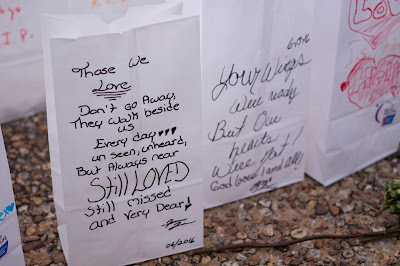 I.P.
Those We
Love
Don't Go Away,
They Walk beside
us
Every day
un seen, unheard,
But Always near
Still LOVED
Still missed
and Very Dear!
06/2016
Your Wings
Were ready
But Our
hearts
Were Not!
God Bless 1 and All